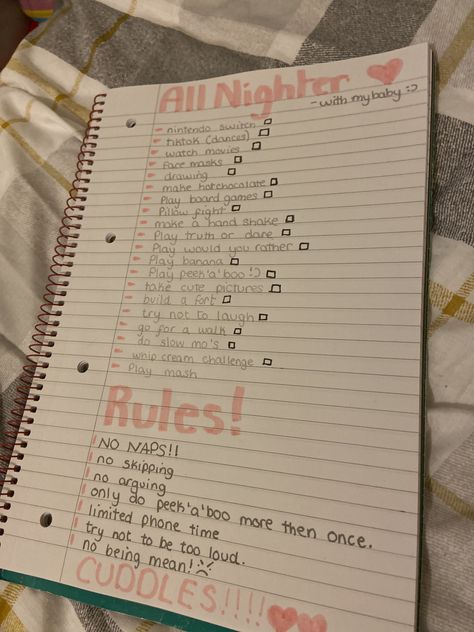 All Nighter
- with my baby :)
nintendo switch
tiktok (dances)
watch movies
Face masks
drawing
make hotchocolate
Play board games
Pillow fight
make a hand shake
Play truth or dare
Play would you rather
Play banana
Play peek'a'boo :)
take cute pictures
build a fort
try not to laugh
go for a walk
do slow mo's
whip cream challenge
Play mash
Rules!
NO NAPS!!
no skipping
no arguing
only do peek'a'boo more then once.
limited phone time
try not to be too loud.
no being mean! :(
CUDDLES!!!!